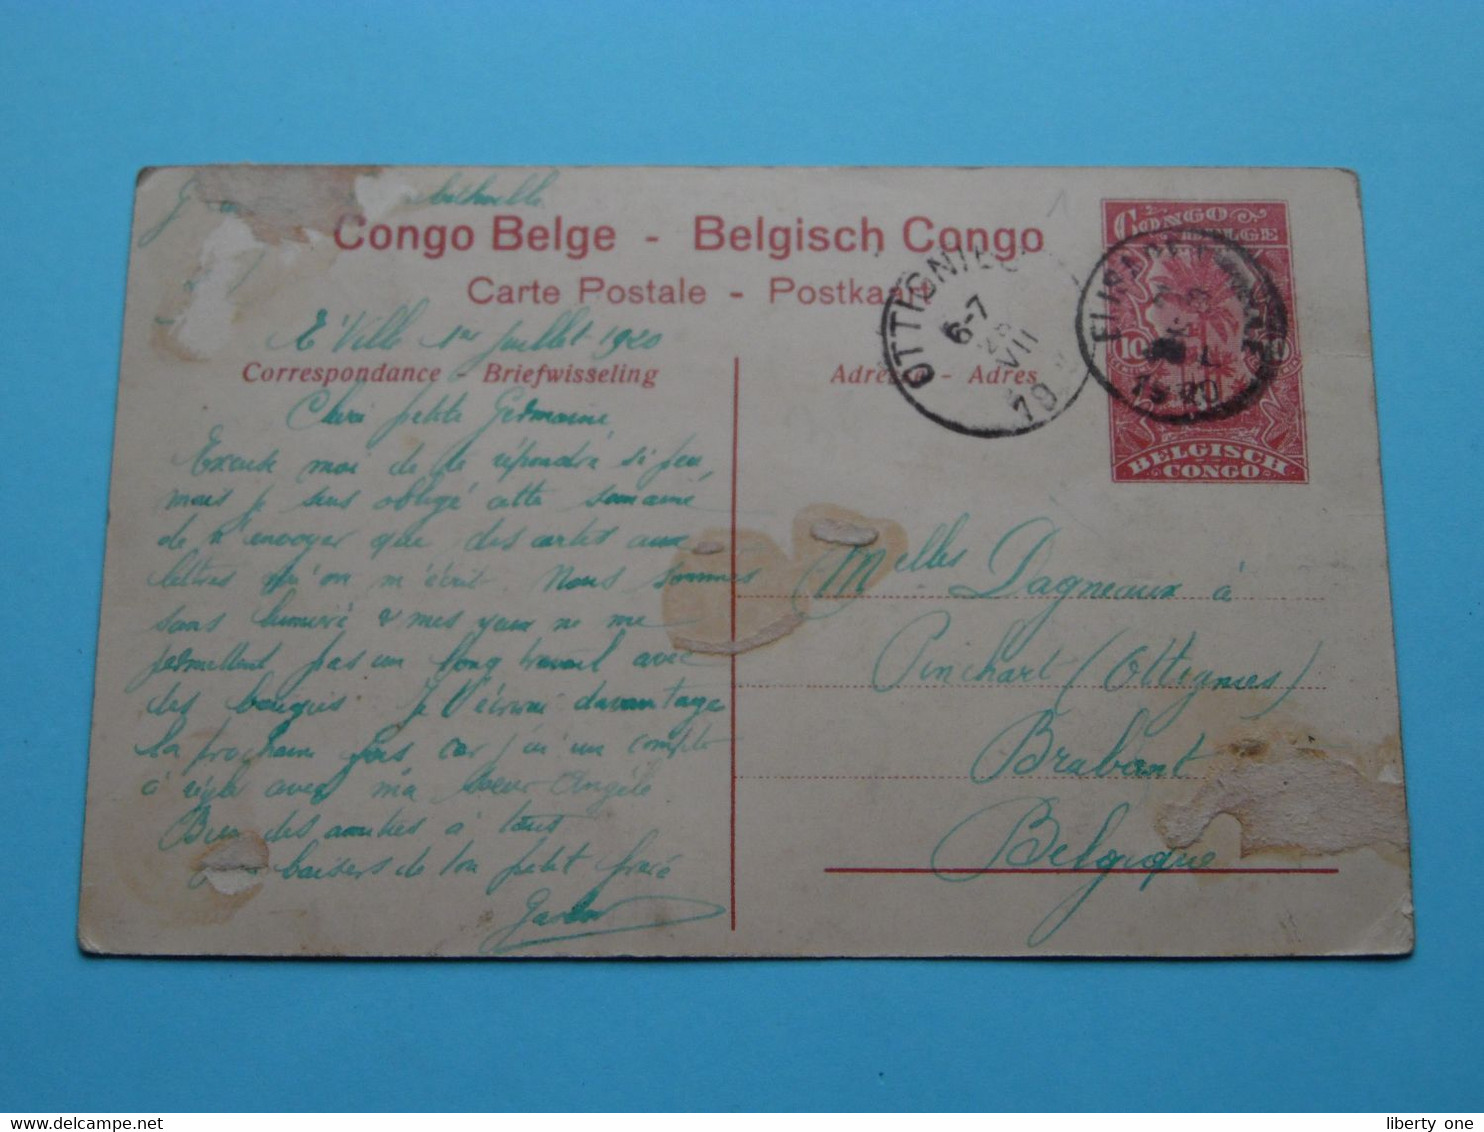 Congo Belge - Belgisch Congo
Carte Postale - Postkaart
E'Ville 1er Juillet 1920
Correspondance - Briefwisseling
Adresse - Adres
CONGO
BELGE
10
BELGISCH
CONGO
OTTIGNIES
6-7
VII
19
Cheri petite Germaine
Excuse moi de te répondre si peu,
mais je suis obligé cette semaine
de n'envoyer que des cartes aux
lettres qu'on m'écrit. Nous sommes
sans lumière & mes yeux ne me
permettent pas un long travail avec
des bougies. Je t'écrirai davantage
la prochaine fois car j'ai un compte
à régler avec ma soeur Angèle
Bien des amitiés à tous
baisers de ton petit frère
Melles Dagneaux à
Pinchart (Ottignies)
Brabant
Belgique
liberty one